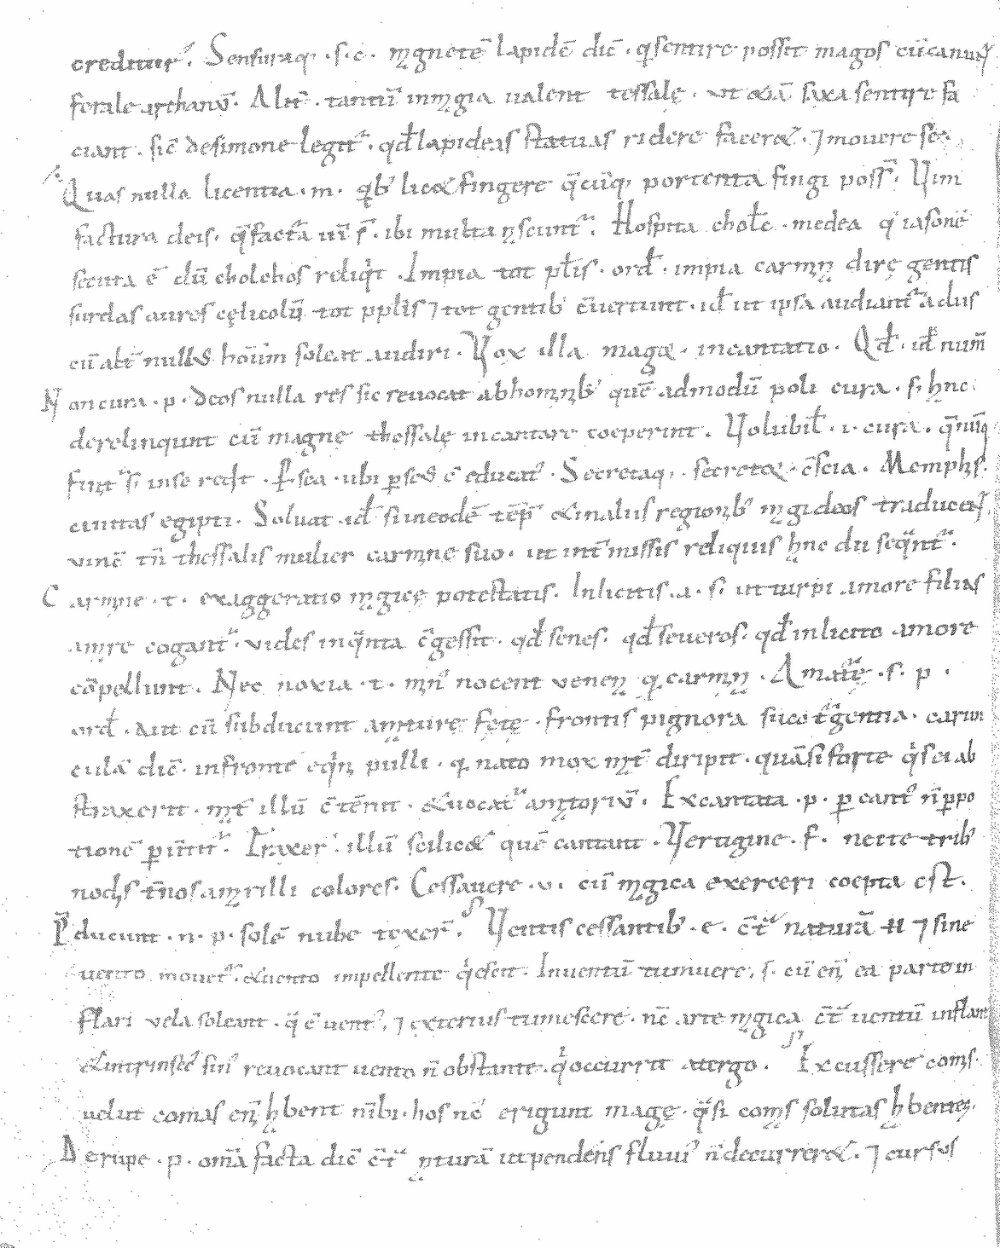 creditur. Sensuraq. s. c. mgnetē lapidē dic̄. q̄ sentire possit magos cū canunt
ferale  . Alit̄. tantū in mgia ualent tessalę. ut &iā saxa sentire fa
ciant. sic̄ de simone legit̄. qđ lapideas statuas ridere facer&. ⁊ mouere se.
Quas nulla licentia. m. qb' lic& fingere q̄cūq; portenta fingi poss̄. Vim
factura deis. q̄ facta uī ē. ibi multa nscunt̄. Hospita cholc̄. medea q' iasonē
secuta ē dū cholchos reliq't. Impia tot pp̄lis. ord̄. impia carmn dirę gentis
surdas aures cęlicolū tot pp̄lis ⁊ tot gentib' c̄uertunt. id̄ ut ipsa audiant̄ a diis
cū ab nullis hoīm soleat audiri. Vox illa magę. incantatio. Qđ. id̄ num̄
Non cura. p. deos nulla res sic reuocat ab homnb' quē admodū poli cura. s; hnc
derelinqunt cū magnę thessalę incantare coeperint. Volubil̄. i. cura. q̄ nūq
finit̄ s; in se redit. P sea. ubi pseus ē educat'. Secretaq;. secret& c̄scia. Memphs.
ciuitas egipti. Soluat id̄ si in eodē tēp̄ & in aliis regionb' mgi deos traducer
uinc̄ tn̄ thessalis mulier carmne suo. ut int̄missis reliquis hnc dii seq̄nt̄.
Carmine. t. exaggeratio mgicę potestatis. Inlicitis. a. s. ut turpi amore filias
amre cogant̄. uides inq̄nta c̄gessit. qđ senes. qđ seueros. qđ inlicito amore
cōpellunt. Nec noxia. t. mn' nocent uenen q carmn. Amatę. s. p.
ord̄. aut cū subducunt amturę fetę. frontis pignora suco t'gentia. carun
culā dic̄. in fronte eq̄n pulli. q nato mox mt̄ diripit. quā si forte q's ei ab
straxerit. mt̄ illū c̄tēnit. & uocat̄ amtoriū. Excantata. p. p cant' n̄ ppo
tionē p iūit'. Traxer̄. illū scilic& quē cantant. Vertigine. f. necte trib'
nodis t̄nos amrilli colores. Cessauere. u. cū mgica exerceri coepta est.
P̄ducunt. n. p. solē nube texer̄. Ventis cessantib'. e. c̄t̄ naturā ⁊ sine
uento mouet̄. & uento impellente q'escit. Inuentū tumuere. s. cū en̄ ea parte in
flari uela soleant. q̄ ē uent'. ⁊ exterius tumescere. nc̄ arte mgica c̄t̄ uentū inflant
& intrinsec̄ sin' reuocant uento n̄ obstante. q' occurrit a tergo. Excussere coms.
uelut comas en̄ hbent nīb;. hos nc̄ erigunt magę. q̄si coms solutas hbentes.
De rupe. p. omā facta dic̄ c̄t̄ nturā ut pendens fluui' n̄ decurrer&. ⁊ cursus